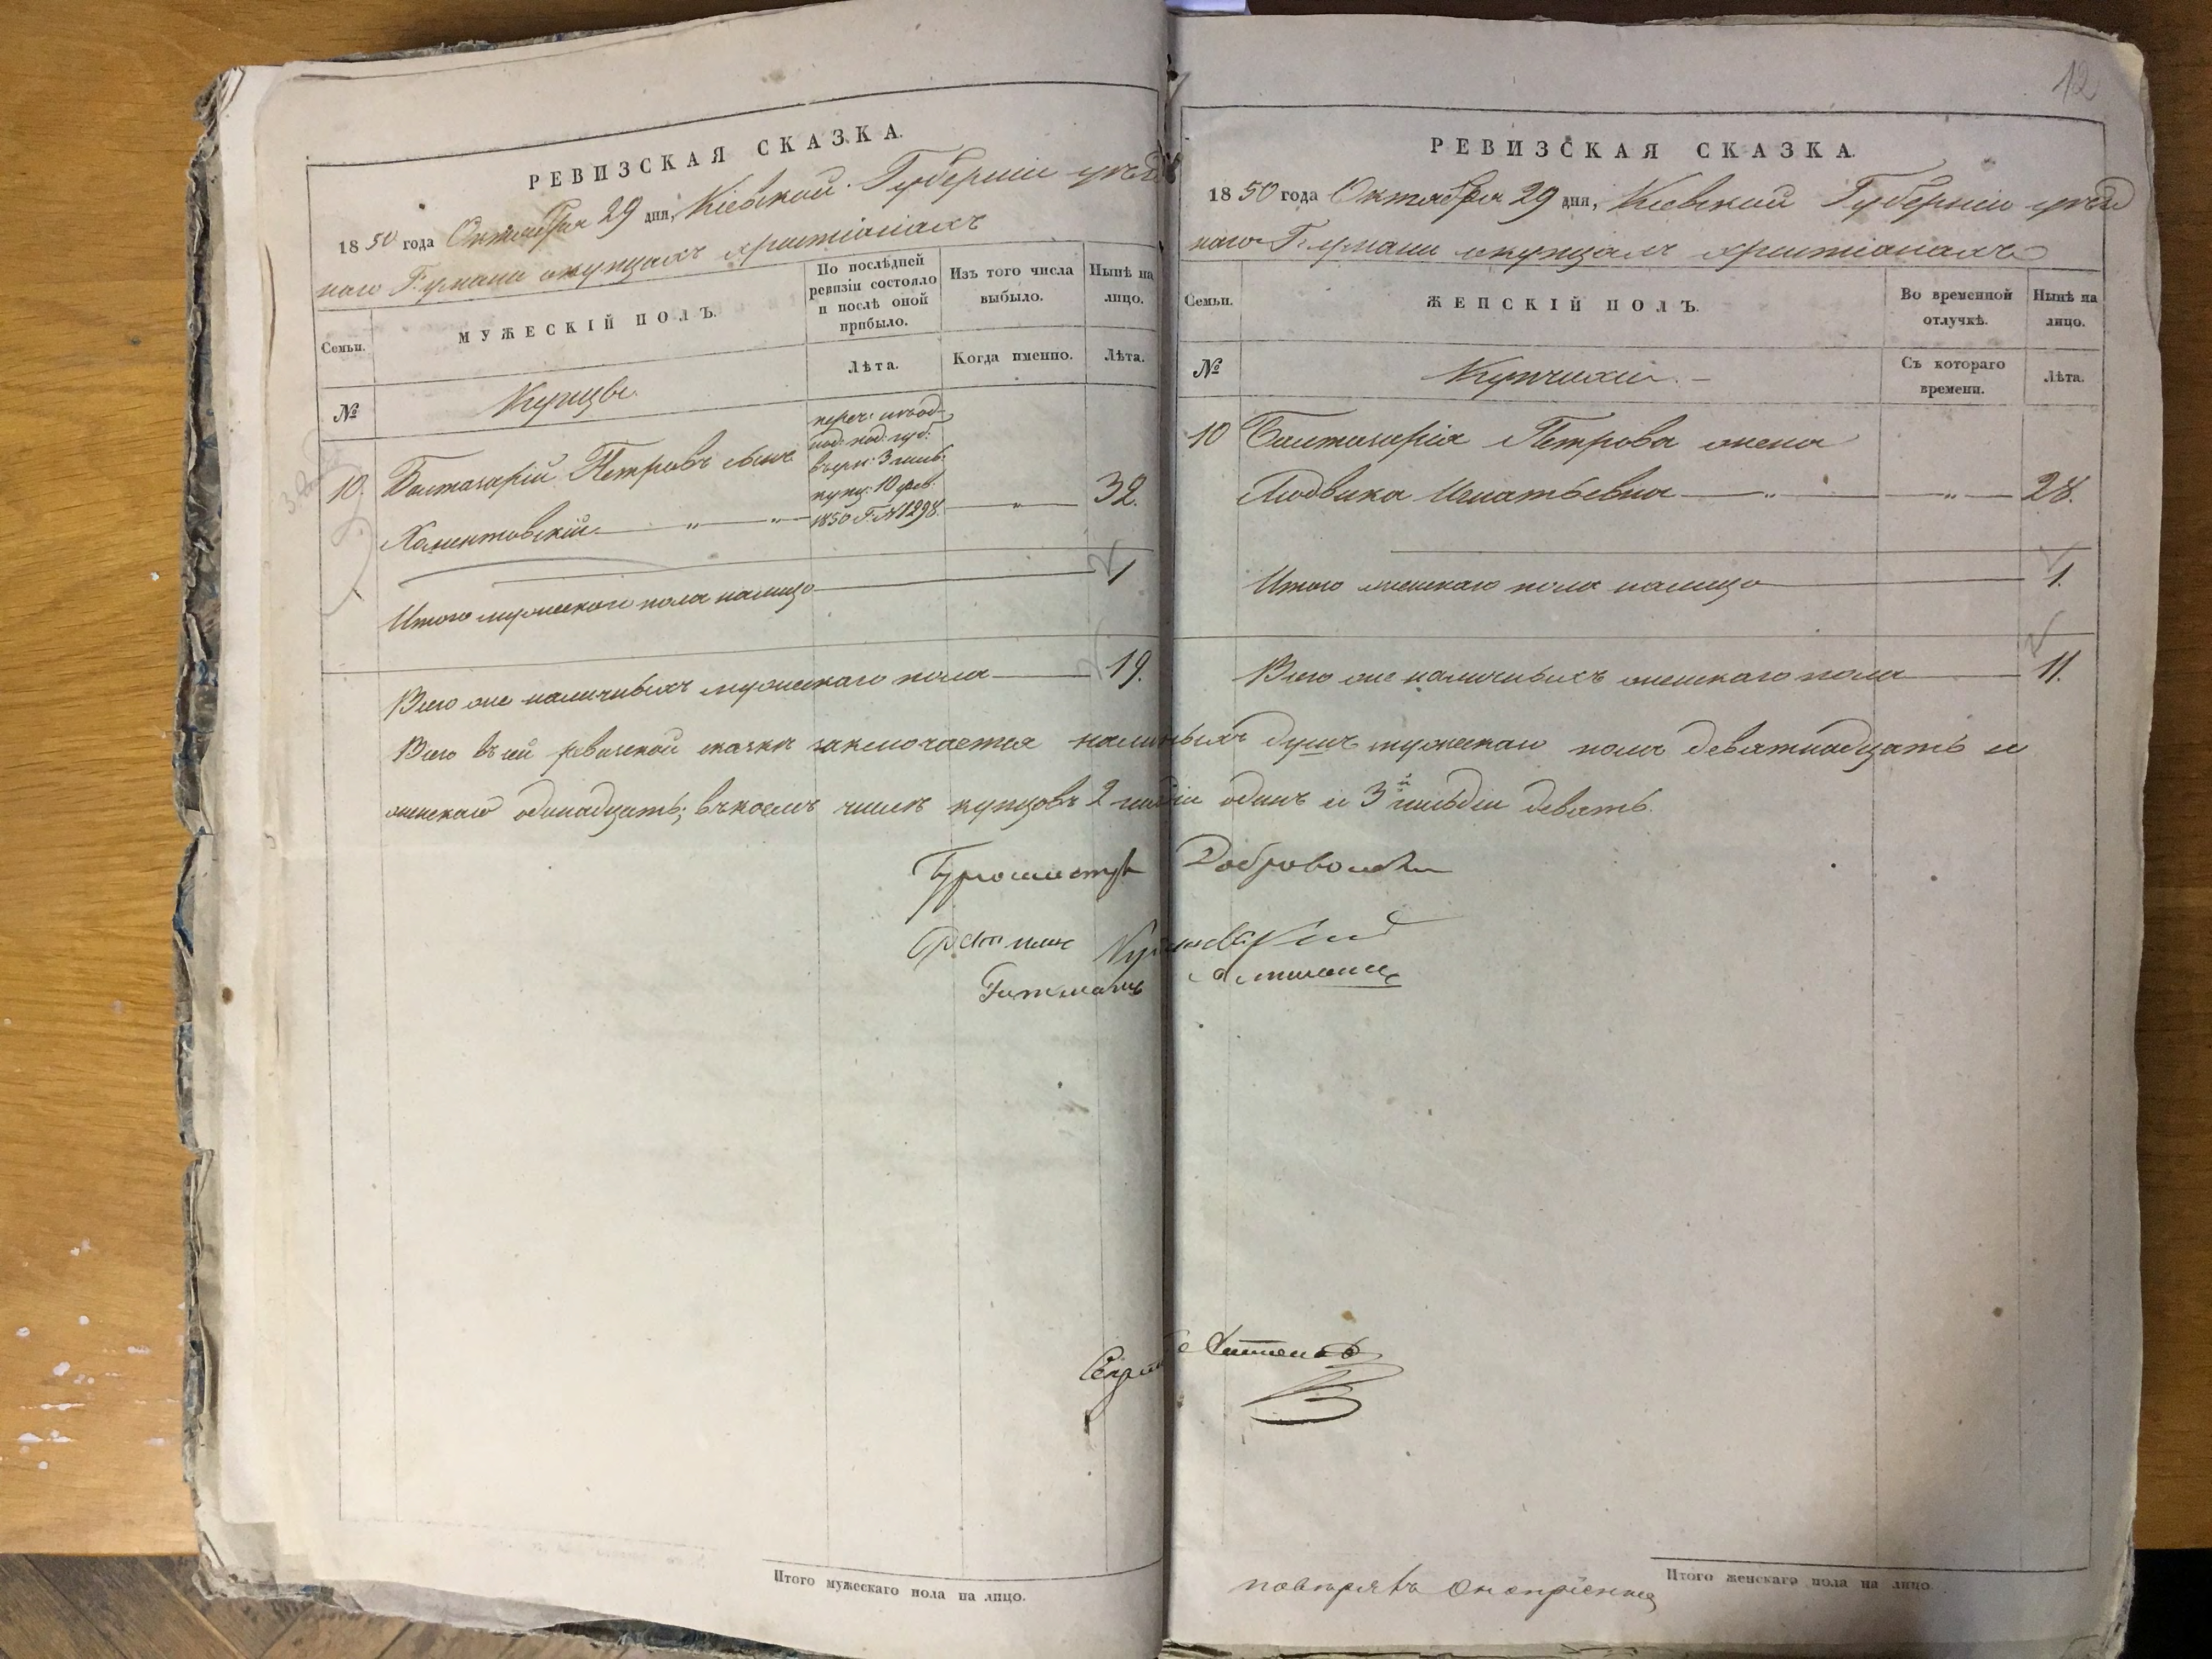 РЕВИЗСКАЯ СКАЗКА.
1850 года Октября 29 дня, Кіевской Губерніи уѣзд
наго Г. Умани о купцахъ христіанахъ
Семьи.
МУЖЕСКІЙ ПОЛЪ.
По послѣдней ревизіи состояло и послѣ оной прибыло.
Изъ того числа выбыло.
Нынѣ на лицо.
№
Купцы.
Лѣта.
Когда именно.
Лѣта.
10.
Балтазарій Петровъ сынъ
32.
купц: 10 фев:
1850 Г. № 1298.
Итого мужескаго пола налицо 1
Всего же наличныхъ мужескаго пола 19.
12
РЕВИЗСКАЯ СКАЗКА.
1850 года Октября 29 дня, Кіевской Губерніи уѣзд
наго Г. Умани о купцахъ христіанахъ
Семьи.
ЖЕНСКІЙ ПОЛЪ.
Во временной отлучкѣ.
Нынѣ на лицо.
№
Купчихи.
Съ котораго времени.
Лѣта.
10 Балтазарія Петрова жена
Людвика Игнатьевна 28.
Итого женскаго пола налицо 1.
Всего же наличныхъ женскаго пола 11.
Всего въ сей ревизской сказкѣ заключается наличныхъ душъ мужескаго пола девятнадцать и
женскаго одинадцать; въ коемъ числѣ купцовъ 2 гильдіи одинъ и 3й гильдіи девять.
Бургомистръ Добровольскій
Ратманъ
Ратманъ
Итого мужескаго пола на лицо.
Итого женскаго пола на лицо.